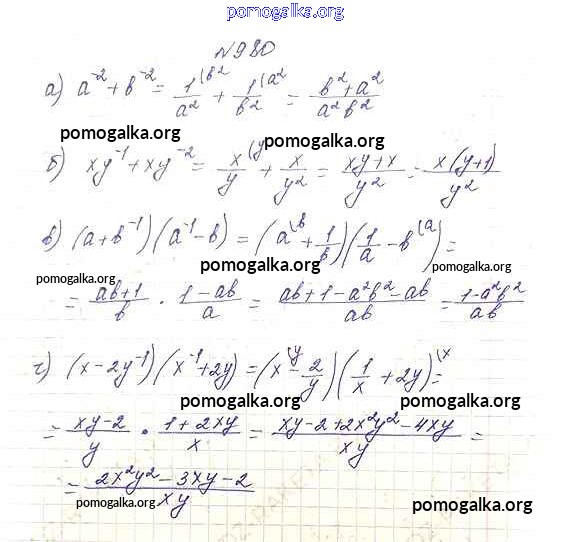 pomogalka.org
№980
а) a⁻² + b⁻² = 1⁽ᵇ²/a² + 1⁽ᵃ²/b² = (b² + a²)/(a²b²)
pomogalka.org pomogalka.org
б) xy⁻¹ + xy⁻² = x⁽ʸ/y + x/y² = (xy + x)/y² = x(y+1)/y²
в) (a + b⁻¹)(a⁻¹ - b) = (a⁽ᵇ + 1/b)(1/a - b⁽ᵃ) =
pomogalka.org pomogalka.org pomogalka.org
= (ab+1)/b · (1-ab)/a = (ab + 1 - a²b² - ab)/(ab) = (1-a²b²)/(ab)
pomogalka.org
г) (x - 2y⁻¹)(x⁻¹ + 2y) = (x⁽ʸ - 2/y)(1/x + 2y)⁽ˣ =
pomogalka.org pomogalka.org
= (xy-2)/y · (1+2xy)/x = (xy - 2 + 2x²y² - 4xy)/(xy) =
= (2x²y² - 3xy - 2)/(xy)
pomogalka.org pomogalka.org